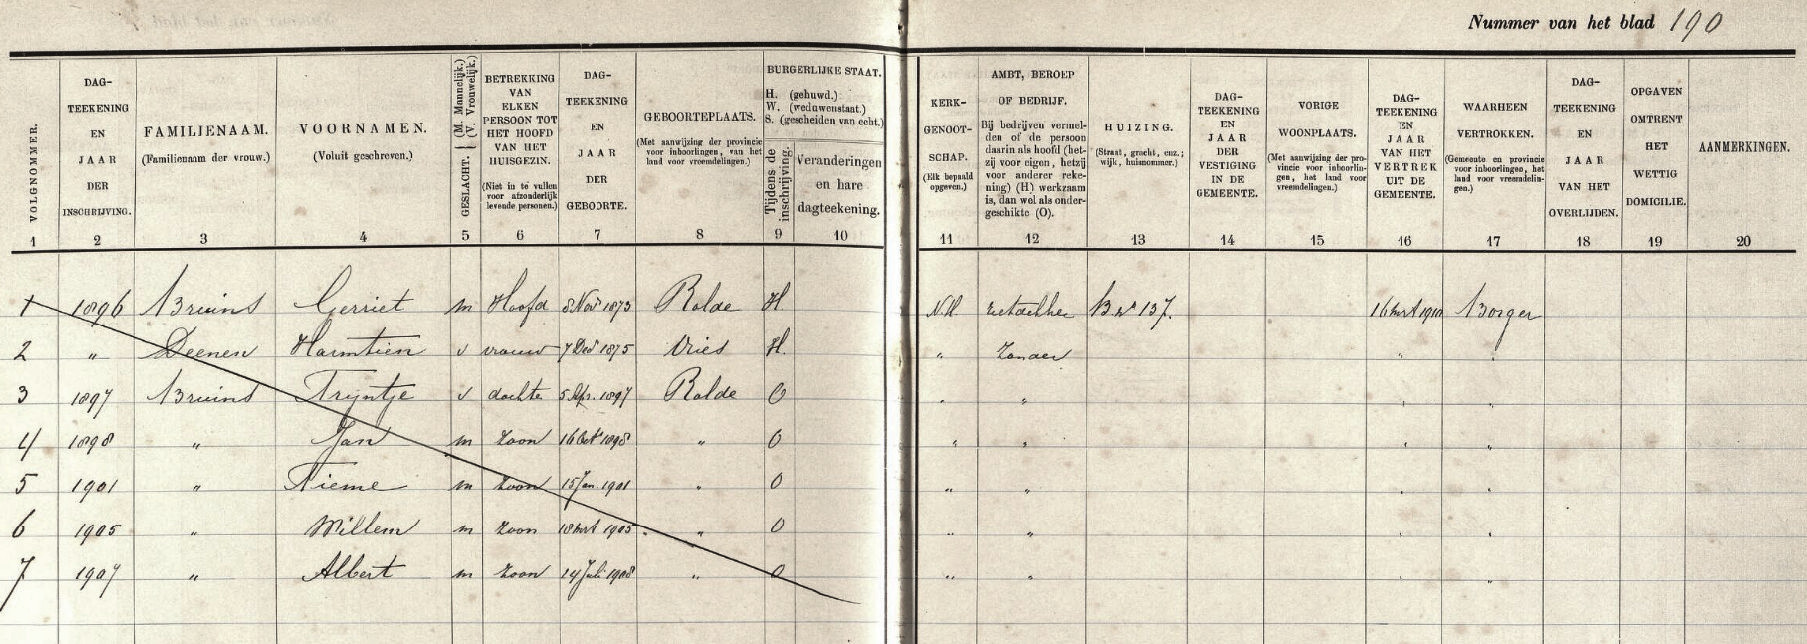 Nummer van het blad 190
VOLGNOMMER.
DAG-
TEEKENING
EN
JAAR
DER
INSCHRIJVING.
FAMILIENAAM.
(Familienaam der vrouw.)
VOORNAMEN.
(Voluit geschreven.)
GESLACHT. (M. Mannelijk.)
(V. Vrouwelijk.)
BETREKKING
VAN
ELKEN
PERSOON TOT
HET HOOFD
VAN HET
HUISGEZIN.
(Niet in te vullen
voor afzonderlijk
levende personen.)
DAG-
TEEKENING
EN
JAAR
DER
GEBOORTE.
GEBOORTEPLAATS.
(Met aanwijzing der provincie
voor inboorlingen, van het
land voor vreemdelingen.)
BURGERLIJKE STAAT.
H. (gehuwd.)
W. (weduwenstaat.)
S. (gescheiden van echt.)
Tijdens de
inschrijving.
Veranderingen
en hare
dagteekening.
KERK-
GENOOT-
SCHAP.
(Elk bepaald
opgeven.)
AMBT, BEROEP
OF BEDRIJF.
Bij bedrijven vermel-
den of de persoon
daarin als hoofd (het-
zij voor eigen, hetzij
voor anderer reke-
ning) (H) werkzaam
is, dan wel als onder-
geschikte (O).
HUIZING.
(Straat, gracht, enz.;
wijk, huisnommer.)
DAG-
TEEKENING
EN
JAAR
DER
VESTIGING
IN DE
GEMEENTE.
VORIGE
WOONPLAATS.
(Met aanwijzing der pro-
vincie voor inboorlin-
gen, het land voor
vreemdelingen.)
DAG-
TEEKENING
EN
JAAR
VAN HET
VERTREK
UIT DE
GEMEENTE.
WAARHEEN
VERTROKKEN.
(Gemeente en provincie
voor inboorlingen, het
land voor vreemdelin-
gen.)
DAG-
TEEKENING
EN
JAAR
VAN HET
OVERLIJDEN.
OPGAVEN
OMTRENT
HET
WETTIG
DOMICILIE.
AANMERKINGEN.
1 2 3 4 5 6 7 8 9 10 11 12 13 14 15 16 17 18 19 20
1 1896 Bruins Gerriet m Hoofd 8 Nov 1873 Rolde H N.H. B no 137. 16 mrt 1910 Borger
2 " Deenen Harmtien v vrouw 7 Dec 1875 Vries H. " Zonder " "
3 1897 Bruins Trijntje v dochte 5 Apr. 1897 Rolde O " " " "
4 1898 " Jan m Zoon 16 Oct 1898 " O " " " "
5 1901 " Tieme m Zoon 15 Jan. 1901 " O " " " "
6 1905 " Willem m Zoon 18 mrt 1905 " O " " " "
7 1907 " Albert m Zoon 14 Juli 1908 " O " " " "